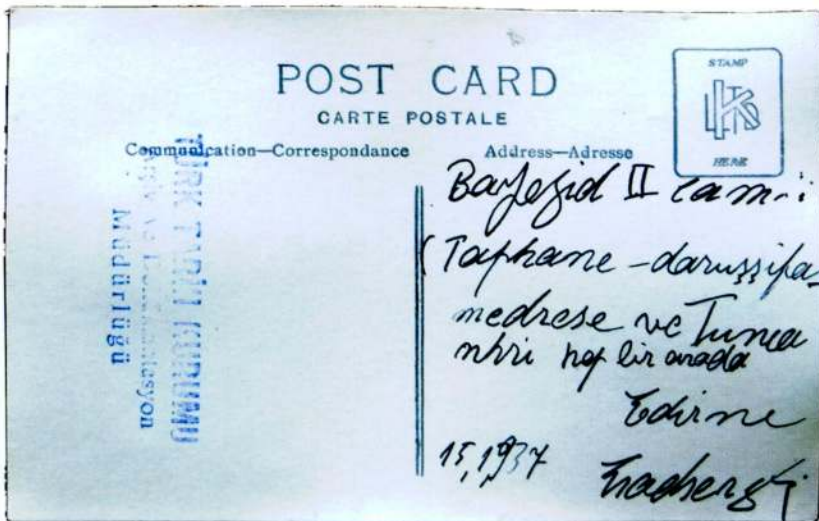 POST CARD
CARTE POSTALE
Communication—Correspondance
Address—Adresse
STAMP
HERE
TÜRK TARİH KURUMU
Arşiv ve Dokümantasyon
Müdürlüğü
Bayezid II camii
(Taphane - daruşşifa-
medrese ve Tunca
nhri hep bir arada
Edirne